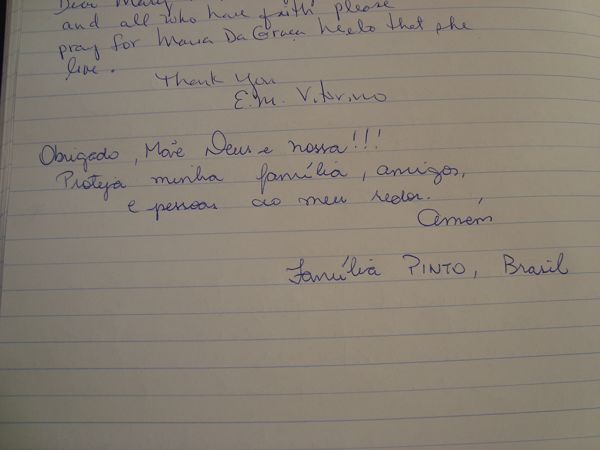 Dear Mary
and all who have faith please
pray for Maria Da Graça Melo that she
live.
Thank You
E.M. Vitorino
Obrigado, Mãe Deus e nossa!!!
Proteja minha família, amigos,
e pessoas ao meu redor.
Amém
Família PINTO, Brasil